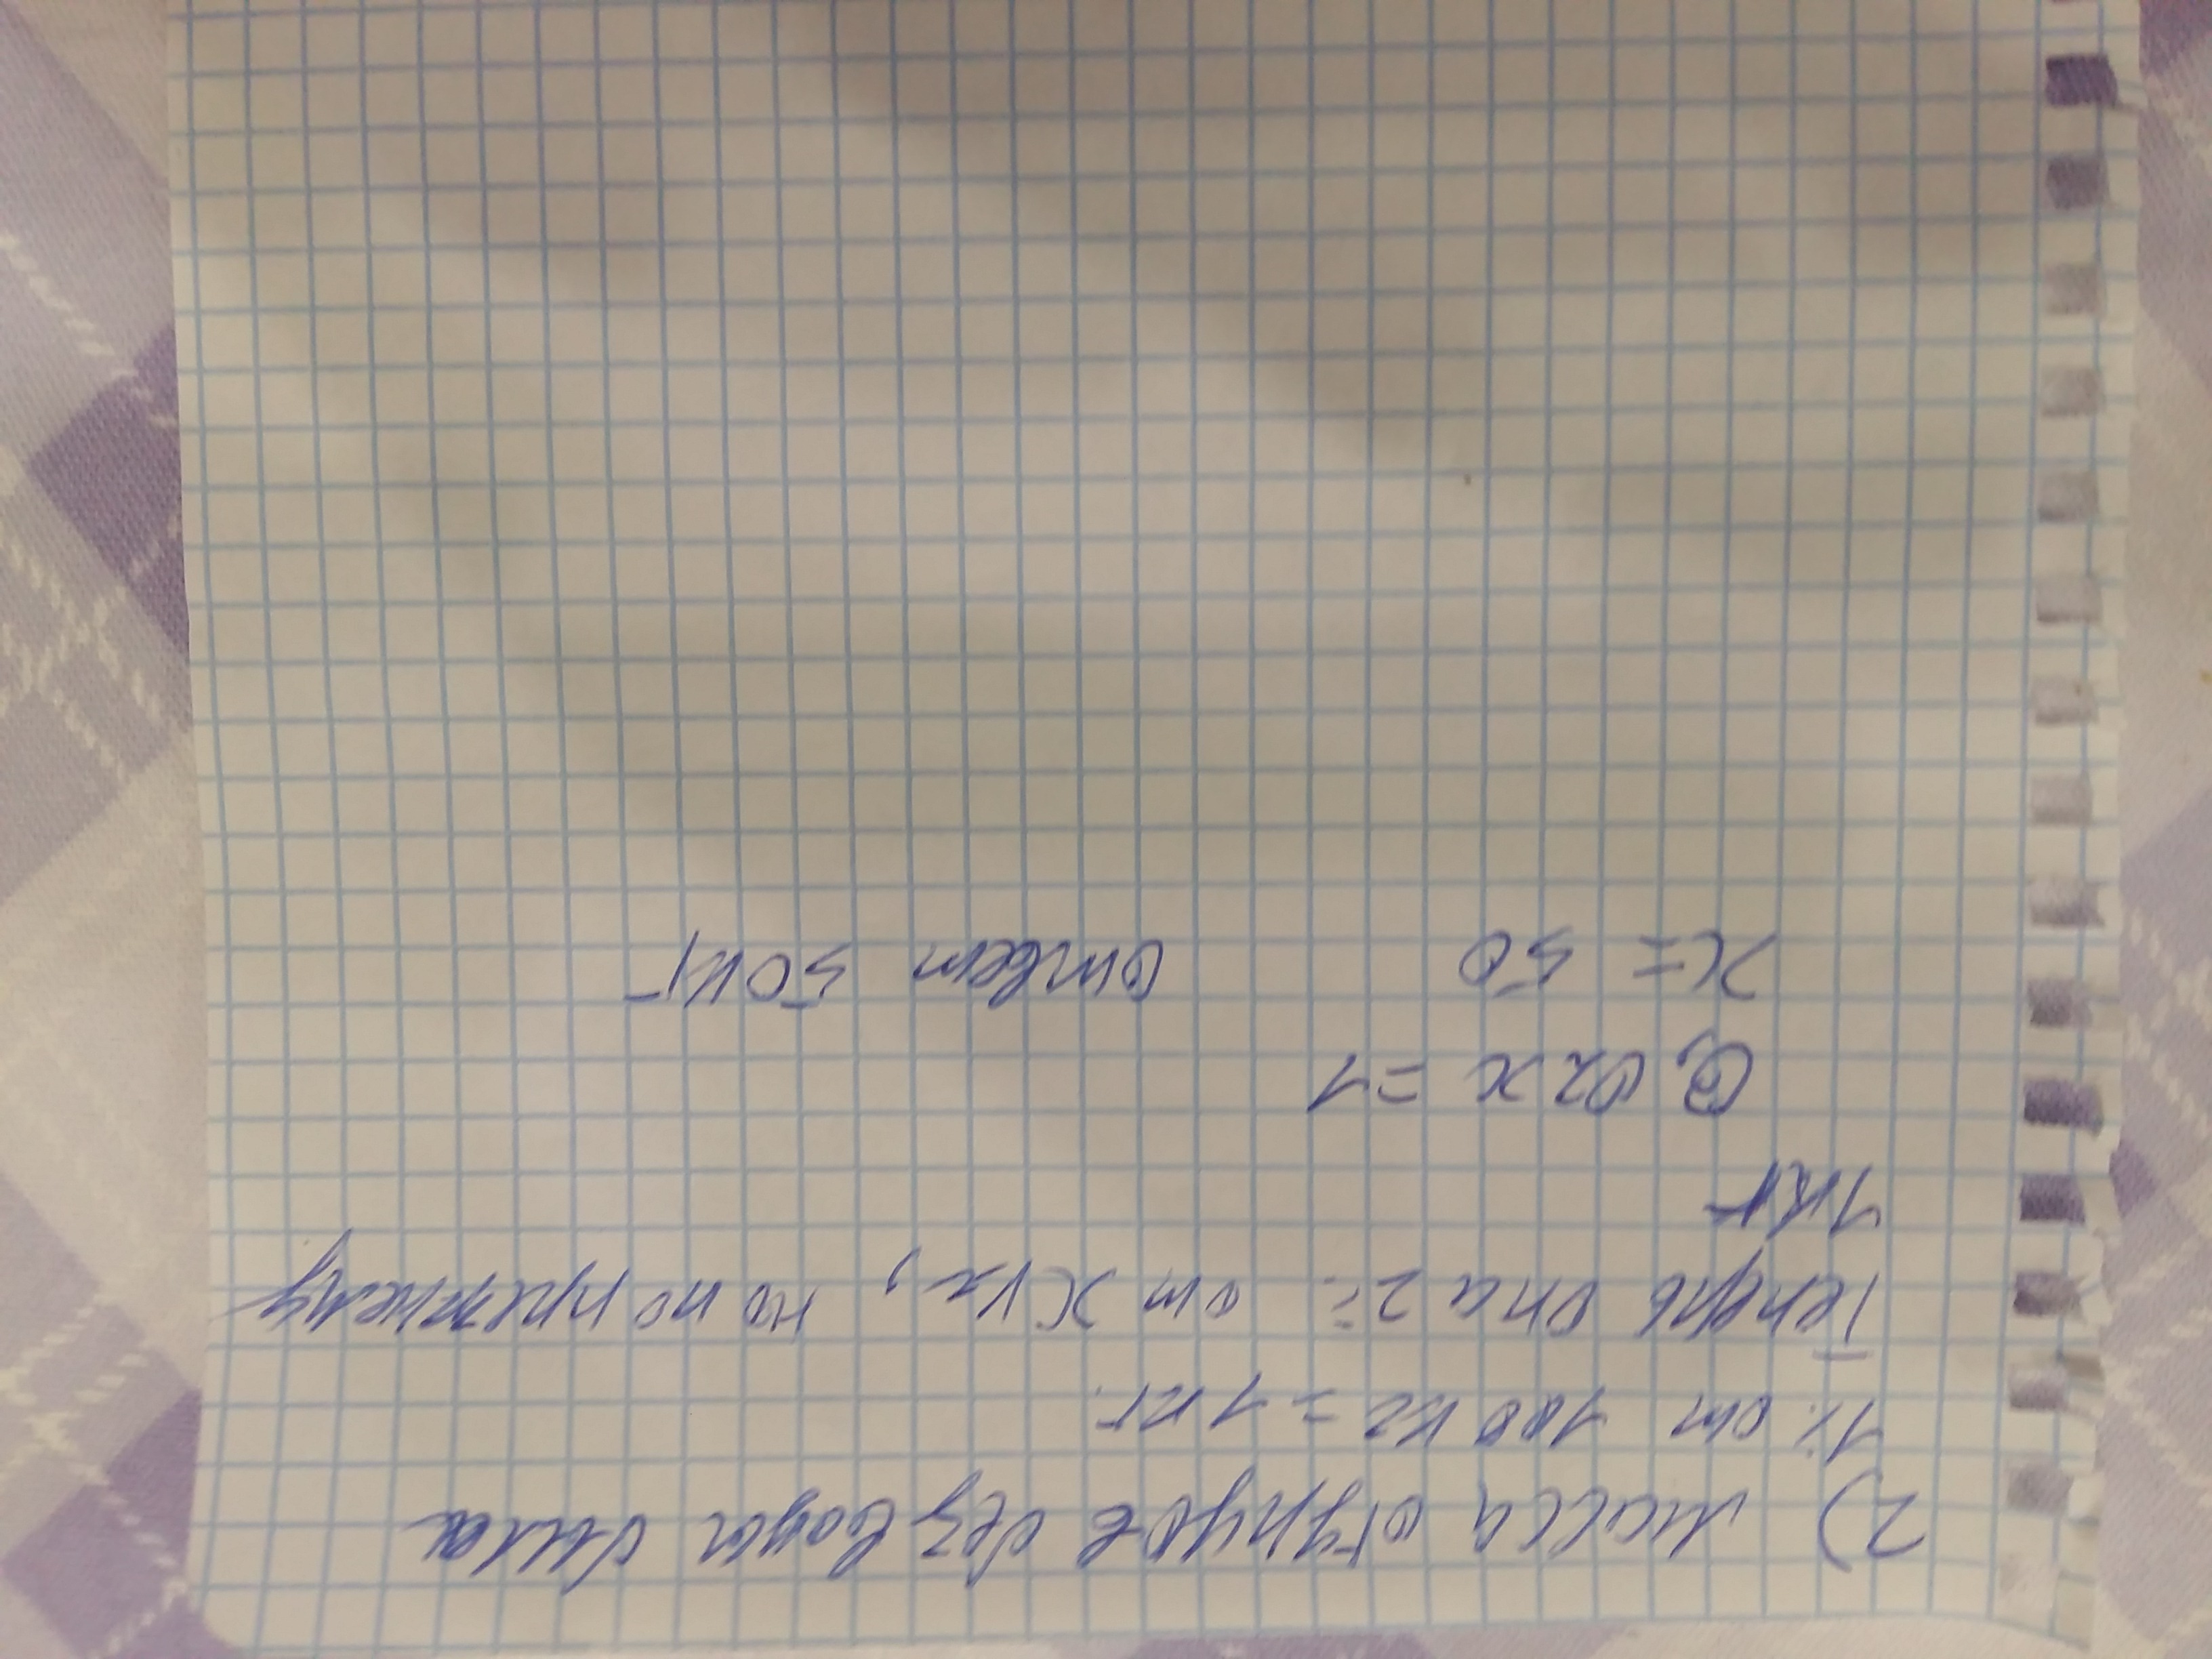 2) масса огурцов без воды была
1% от 100 кг = 1 кг.
Теперь она 2% от x кг, но по прежнему
1кг
0,02x = 1
x = 50 ответ 50кг